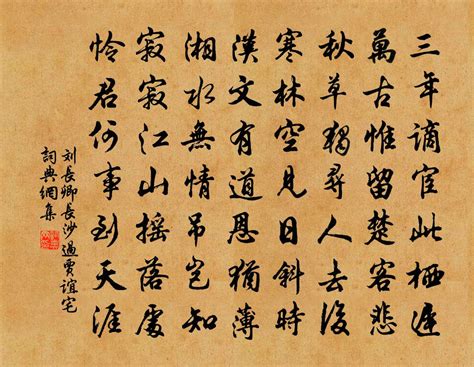 三年謫宦此栖遲
萬古惟留楚客悲
秋草獨尋人去後
寒林空見日斜時
漢文有道恩猶薄
湘水無情吊豈知
寂寂江山摇落處
怜君何事到天涯
刘長卿長沙過賈誼宅
詞典網集